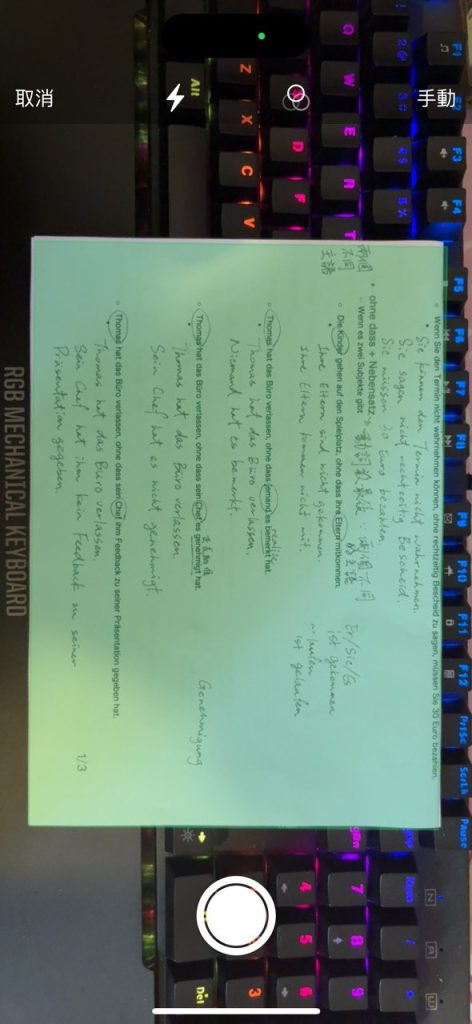 取消
手動
Wenn Sie den Termin nicht wahrnehmen können, ohne rechtzeitig Bescheid zu sagen, müssen Sie 30 Euro bezahlen.
Sie können den Termin nicht wahrnehmen.
Sie sagen nicht rechtzeitig Bescheid.
Sie müssen 30 Euro bezahlen.
ohne dass + Nebensatz
Wenn es zwei Subjekte gibt
兩個
不同
主語
動詞放最後
兩個不同
的主語
Die Kinder gehen auf den Spielplatz, ohne dass ihre Eltern mitkommen.
Ihre Eltern sind nicht gekommen.
Ihre Eltern kommen nicht mit.
Er/Sie/Es
ist gekommen
laufen
ist gelaufen
Thomas hat das Büro verlassen, ohne dass jemand es bemerkt hat.
Thomas hat das Büro verlassen.
Niemand hat es bemerkt.
Thomas hat das Büro verlassen, ohne dass sein Chef es genehmigt hat.
Thomas hat das Büro verlassen
Sein Chef hat es nicht genehmigt.
Genehmigung
Thomas hat das Büro verlassen, ohne dass sein Chef ihm Feedback zu seiner Präsentation gegeben hat.
Thomas hat das Büro verlassen.
Sein Chef hat ihm kein Feedback zu seiner
Präsentation gegeben.
1/3
RGB MECHANICAL KEYBOARD
Alt
Z
X
C
V
D
F
Q
W
E
R
T
F1
F2
F3
F4
F5
F6
F7
F8
F9
F10
F11
F12
PrtSc
ScrLk
Pause
7
8
9
4
5
6
3
Del